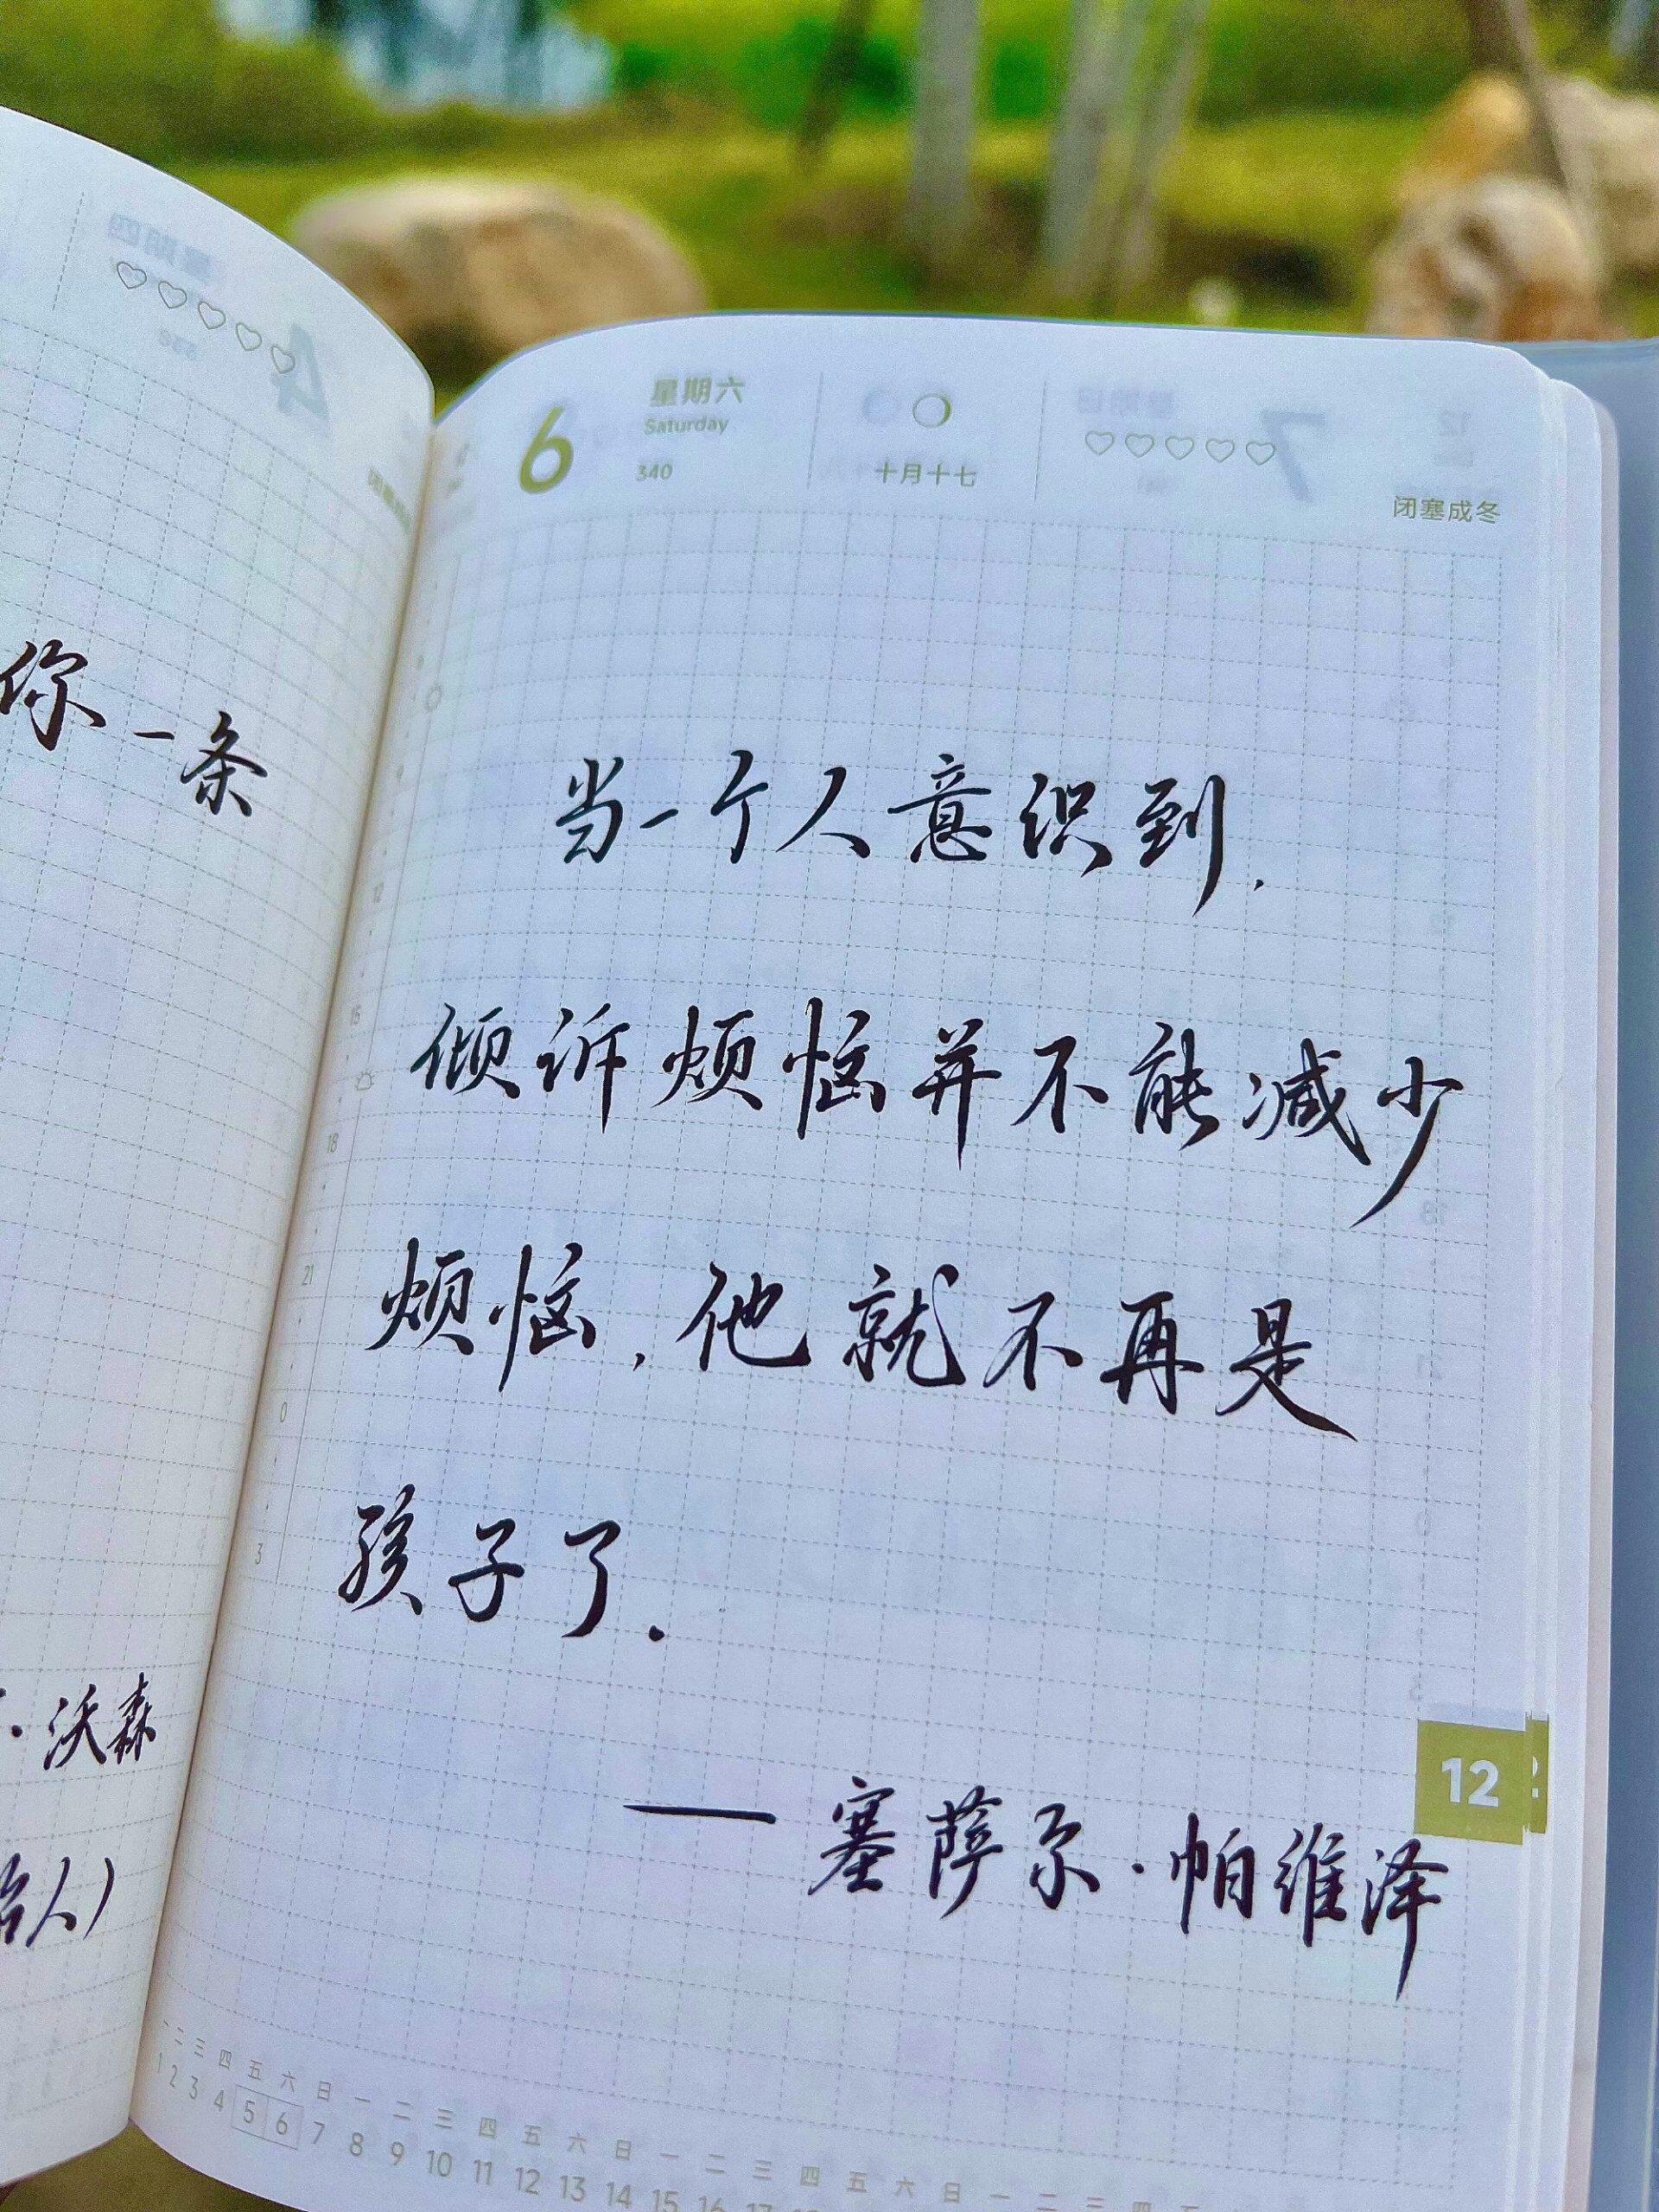 你一条
·沃森
人)
6
星期六
Saturday
340
十月十七
闭塞成冬
当一个人意识到,
倾诉烦恼并不能减少
烦恼,他就不再是
孩子了.
— 塞萨尔·帕维泽
12
9
12
15
18
21
0
3
一 二 三 四 五 六 日 一 二 三 四 五 六 日 一 二 三 四 五 六 日 一 二 三 四 五
1 2 3 4 5 6 7 8 9 10 11 12 13 14 15 16 17